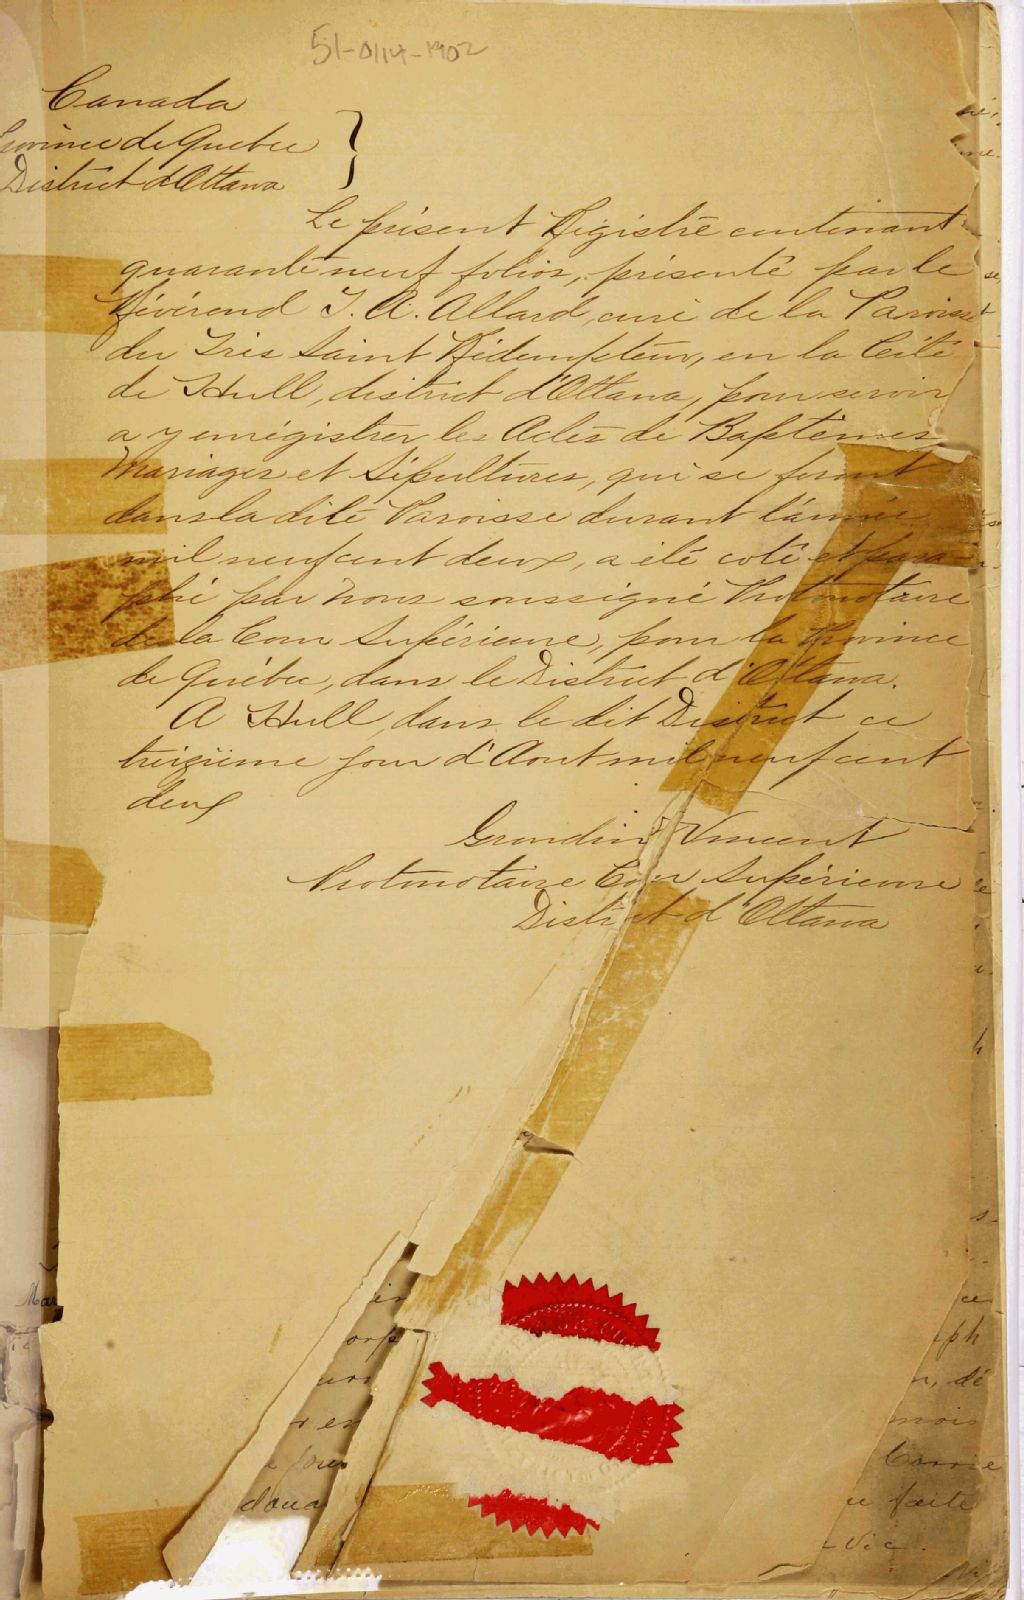 51-0114-1902
Canada
Province de Quebec
District d'Ottawa
Le présent Régistre contenant
quarante neuf folios, présenté par le
Révérend J. A. Allard, curé de la Paroisse
du Très Saint Rédempteur, en la Cité
de Hull, district d'Ottawa, pour servir
a y enrégistrer les Actes de Baptêmes
Mariages et Sépultures, qui se feront
dans la dite Paroisse durant l'année
mil neuf cent deux, a été coté et para-
phé par Nous soussigné Protonotaire
de la Cour Supérieure, pour la Province
de Québec, dans le District d'Ottawa.
A Hull, dans le dit District ce
treizième jour d'Aout mil neuf cent
deux
Grondin Vincent
Protonotaire Cour Supérieure
District d'Ottawa
ce
iph
n, dé
mois
u faite
Vic.